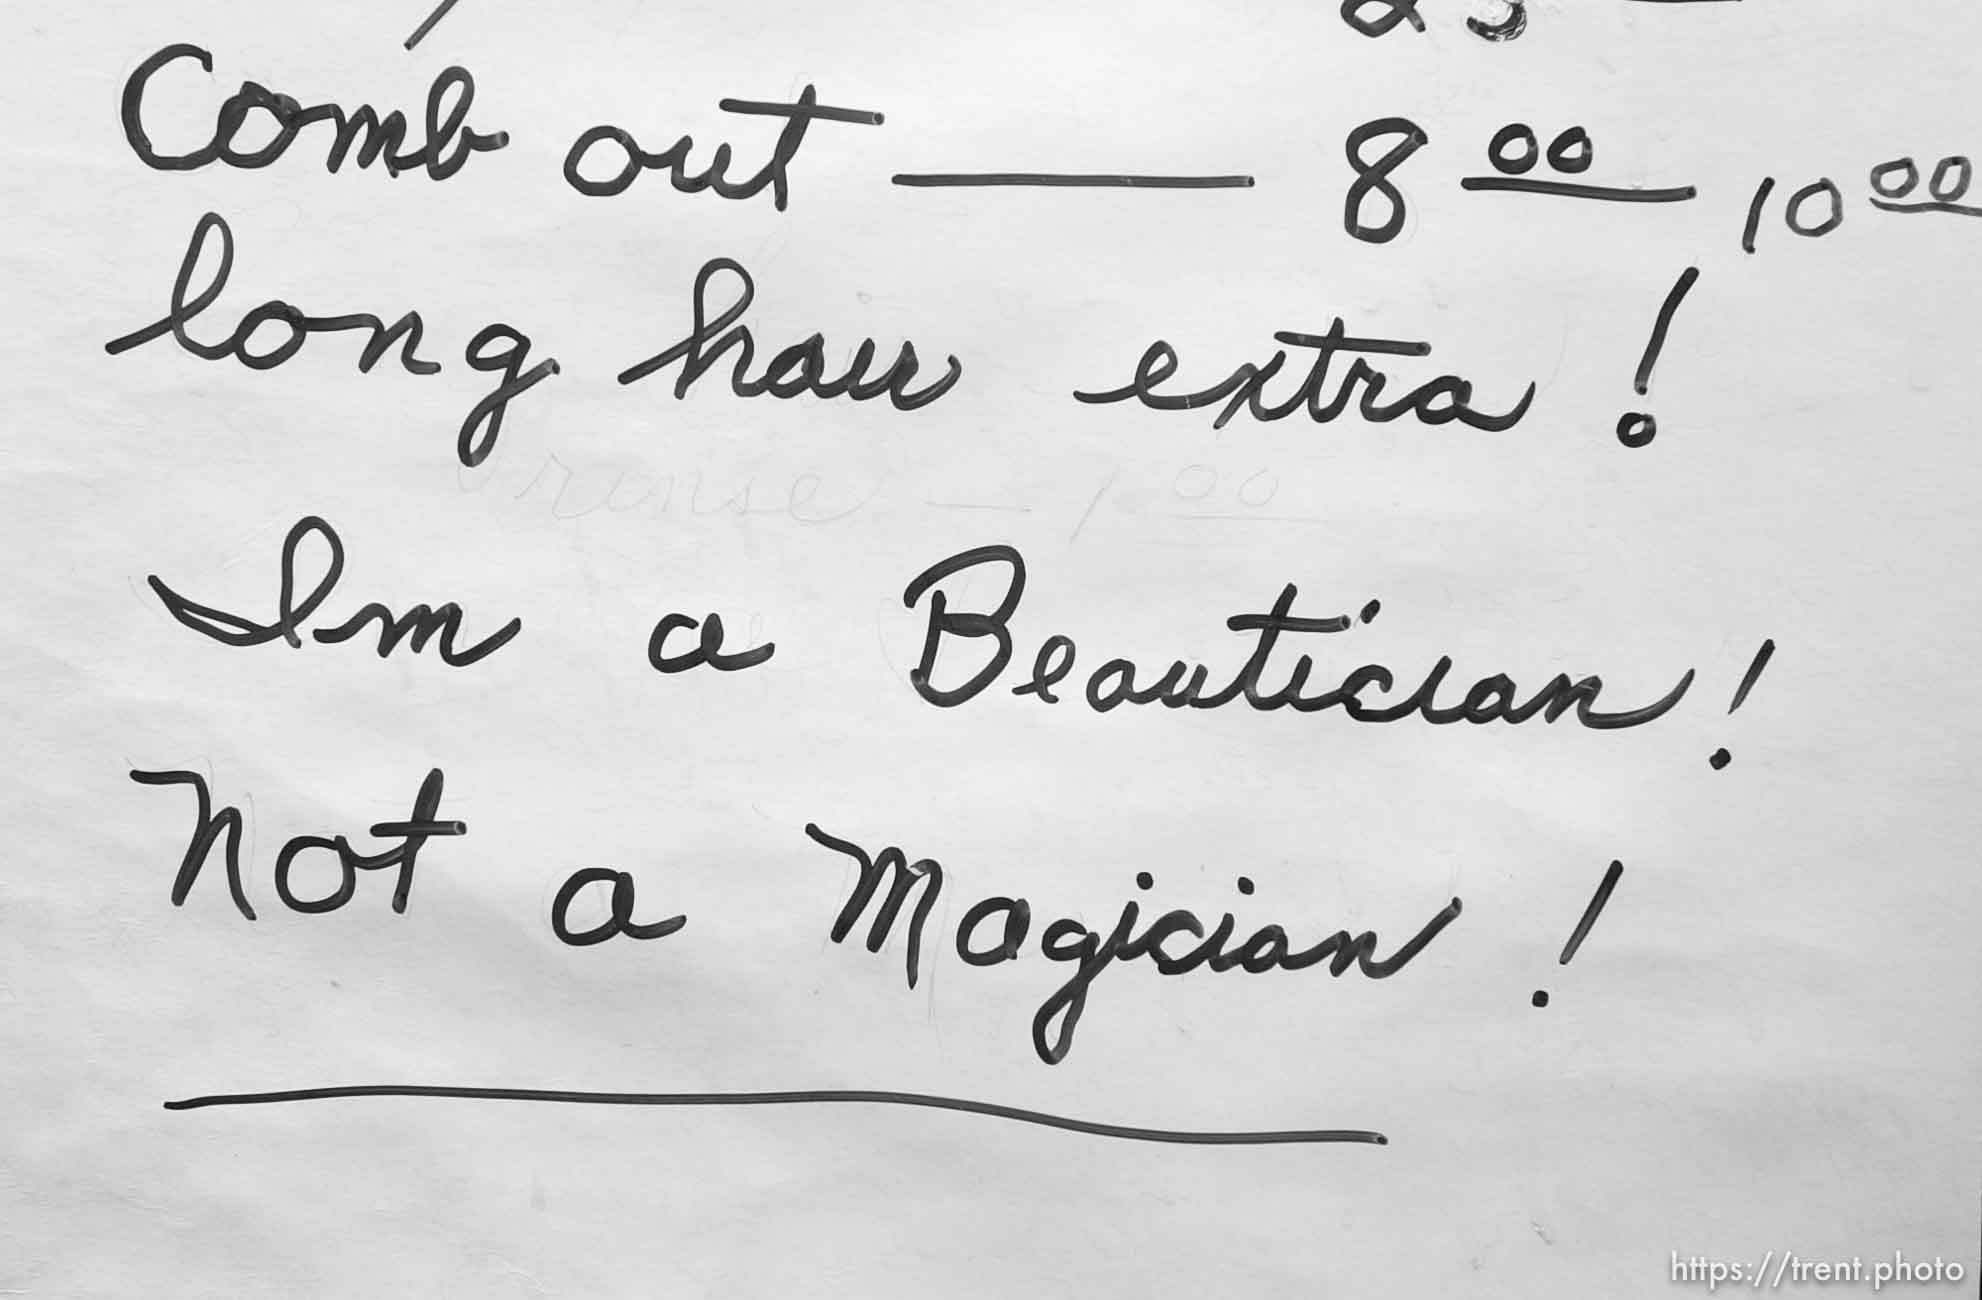 25
Comb out — 8 00 10 00
long hair extra!
rinse — 1 00
Im a Beautician!
Not a Magician!
https://trent.photo